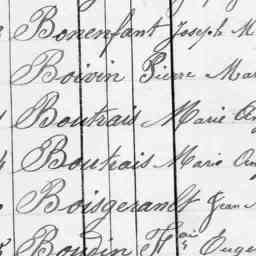 Bonenfant Joseph M
Boivin Pierre Mar
Boutrais Marie Ang
Boutrais Marie Ang
Boisgerault Jean M
Boudin Fçois Euge